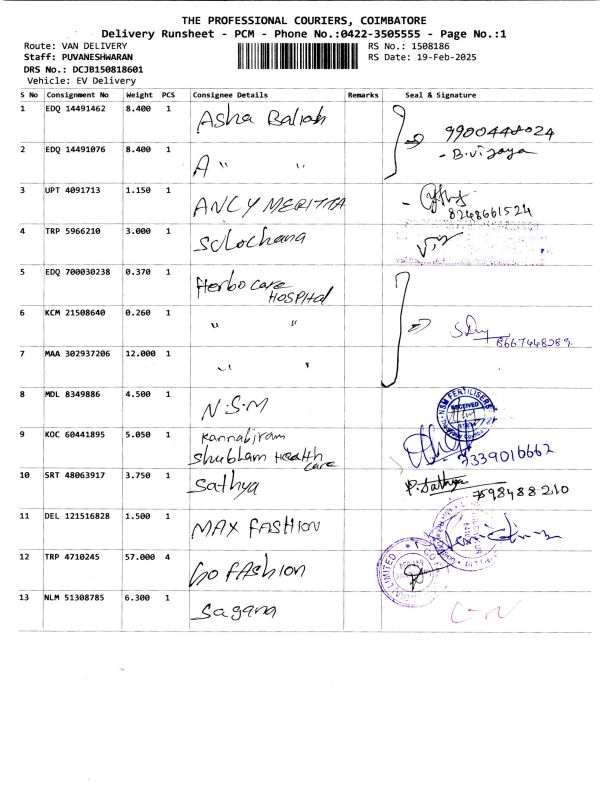 THE PROFESSIONAL COURIERS, COIMBATORE
Delivery Runsheet - PCM - Phone No.:0422-3505555 - Page No.:1
Route: VAN DELIVERY
RS No.: 1508186
Staff: PUVANESHWARAN
RS Date: 19-Feb-2025
DRS No.: DCJB150818601
Vehicle: EV Delivery
S No Consignment No Weight PCS Consignee Details Remarks Seal & Signature
1 EDQ 14491462 8.400 1 Asha Baliah
9900448024
2 EDQ 14491076 8.400 1 A " "
- B.Vijaya
3 UPT 4091713 1.150 1 ANCY MERITTA
8248661524
4 TRP 5966210 3.000 1 Sulochana
5 EDQ 700030238 0.370 1 Herbo care
HOSPHal
6 KCM 21508640 0.260 1 " "
8667448289
7 MAA 302937206 12.000 1 " "
8 MDL 8349886 4.500 1 N.S.M
NSM FERTILISERS
RECEIVED
9 KOC 60441895 5.050 1 Kannabiram
Shubham Health
care
9339016662
10 SRT 48063917 3.750 1 Sathya
P. Sathya
7598488210
11 DEL 121516828 1.500 1 MAX FASHION
12 TRP 4710245 57.000 4 Go FAshion
LIMITED
13 NLM 51308785 6.300 1 Sagana